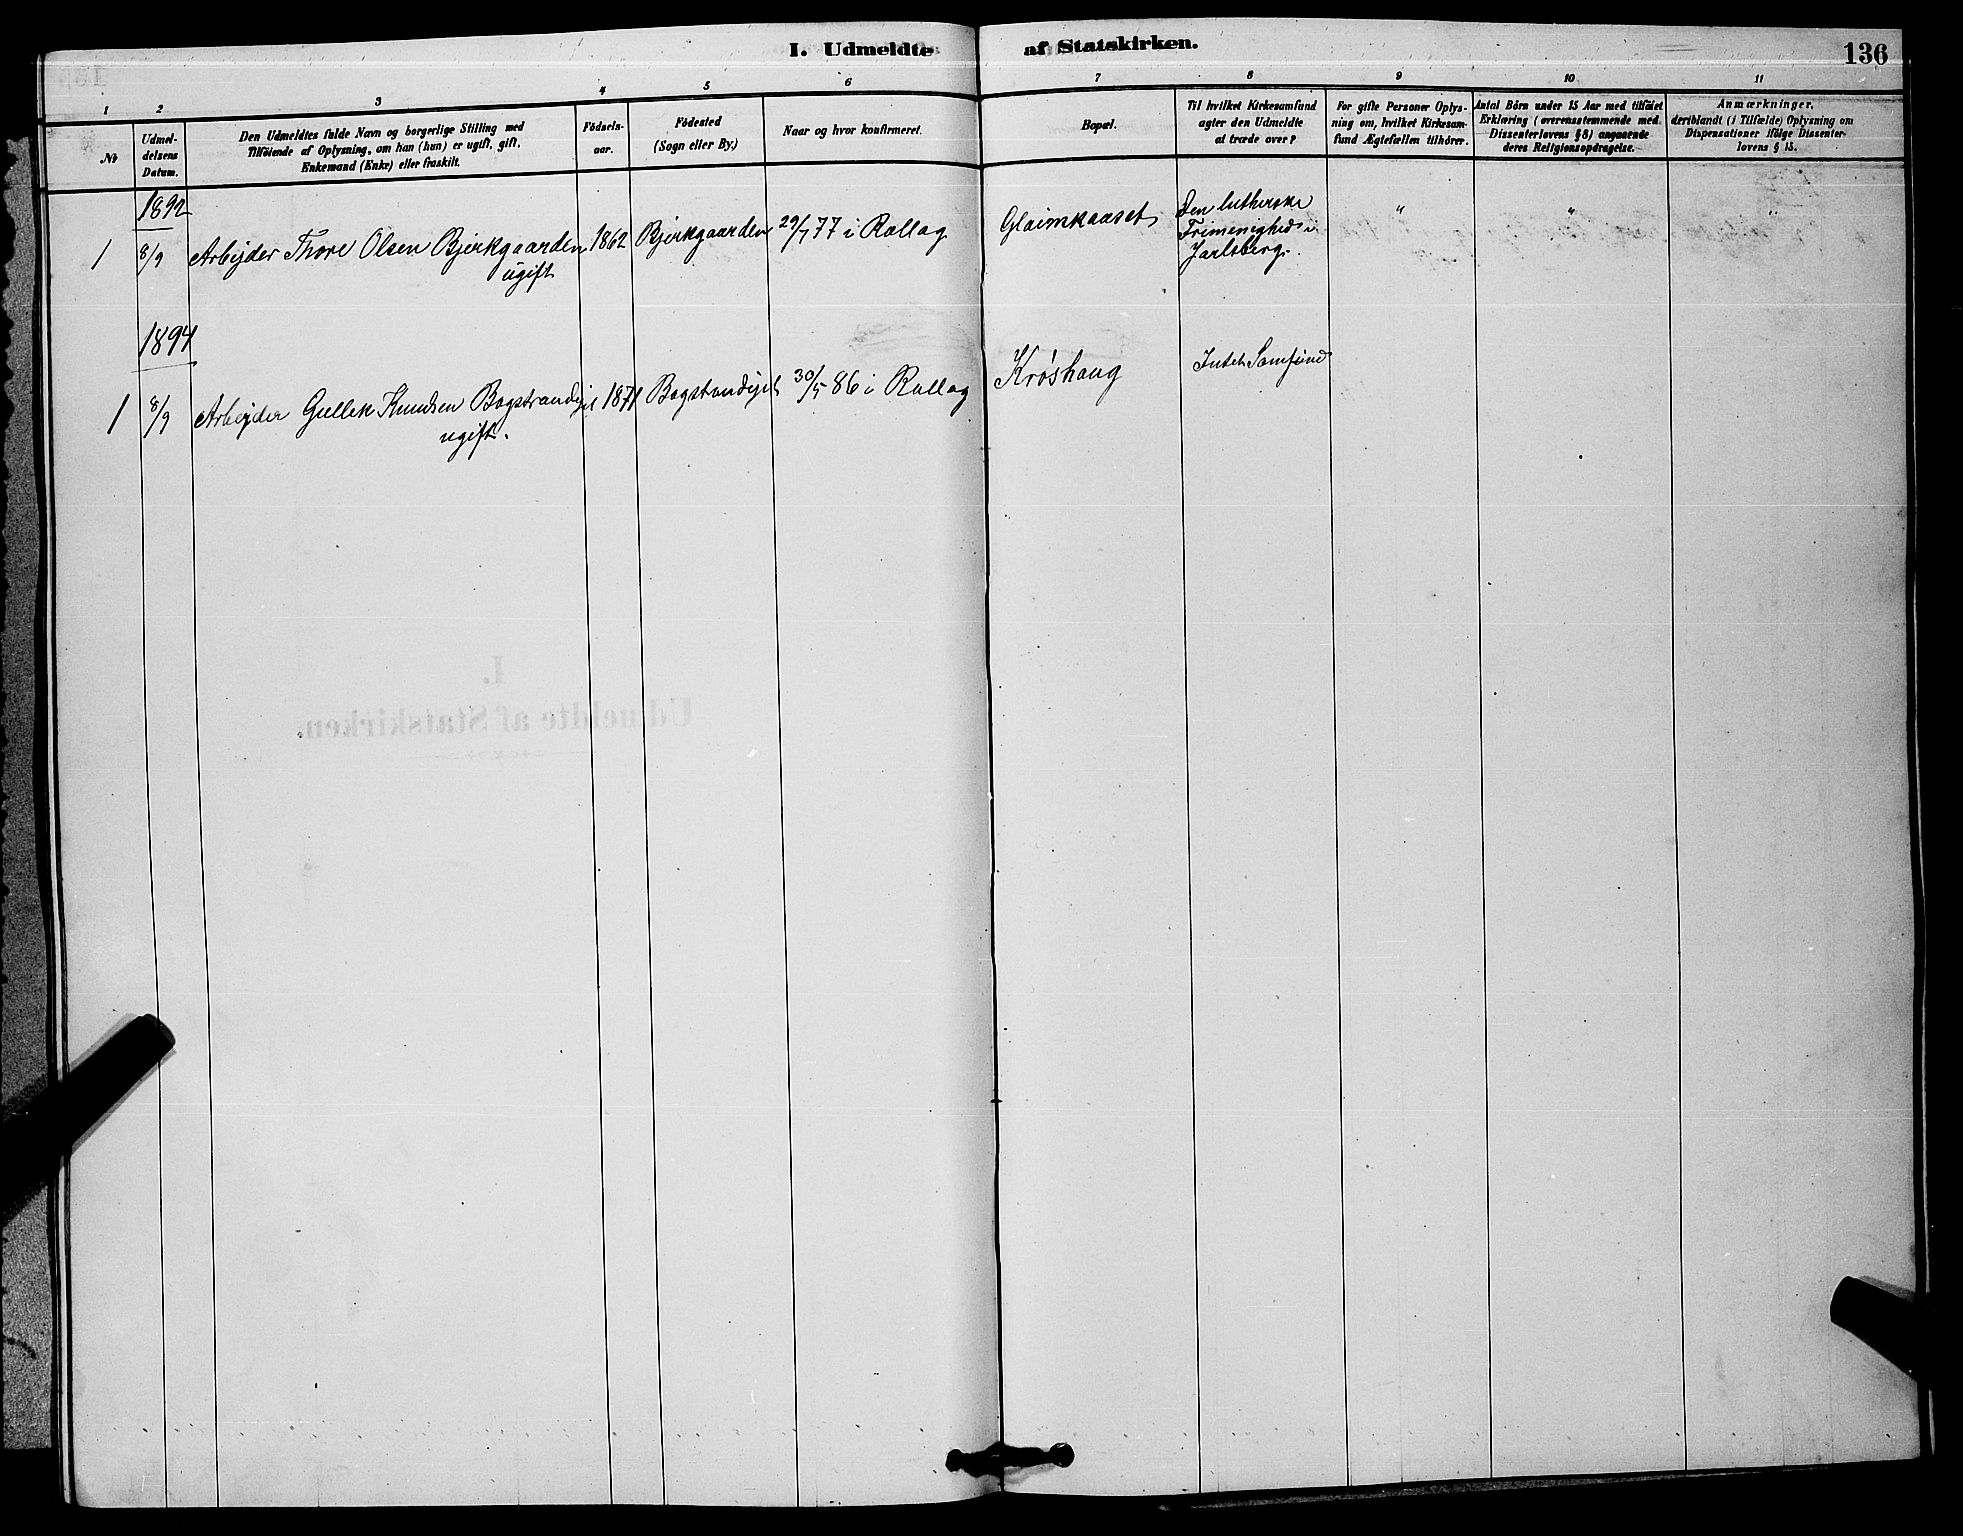 I. Udmeldte af Statskirken.
136
1 2 3 4 5 6 7 8 9 10 11
№
Udmel-
delsens
Datum.
Den Udmeldtes fulde Navn og borgerlige Stilling med
Tilföiende af Oplysning, om han (hun) er ugift, gift,
Enkemand (Enke) eller fraskilt.
Födsels-
aar.
Födested
(Sogn eller By.)
Naar og hvor konfirmeret.
Bopæl.
Til hvilket Kirkesamfund
agter den Udmeldte
at træde over?
For gifte Personer Oplys-
ning om, hvilket Kirkesam-
fund Ægtefællen tilhörer.
Antal Börn under 15 Aar med tilföiet
Erklæring (overensstemmende med
Dissenterlovens § 8) angaaende
deres Religionsopdragelse.
Anmærkninger,
deriblandt (i Tilfælde) Oplysning om
Dispensationer ifölge Dissenter-
lovens § 15.
1892
1 8/9 Arbejder Thore Olsen Bjerkgaarden 1862 Bjerkgaarden 29/7 77 i Rollag Glaimkaaset
ugift
Den lutherske
Frimenighed i
Jarlsberg.
" " "
1894
1 8/9 Arbejder Gullek Knudsen Bogstrandejet 1871 Bogstrandejet 30/5 86 i Rollag Krøshaug Intet Samfund
ugift.